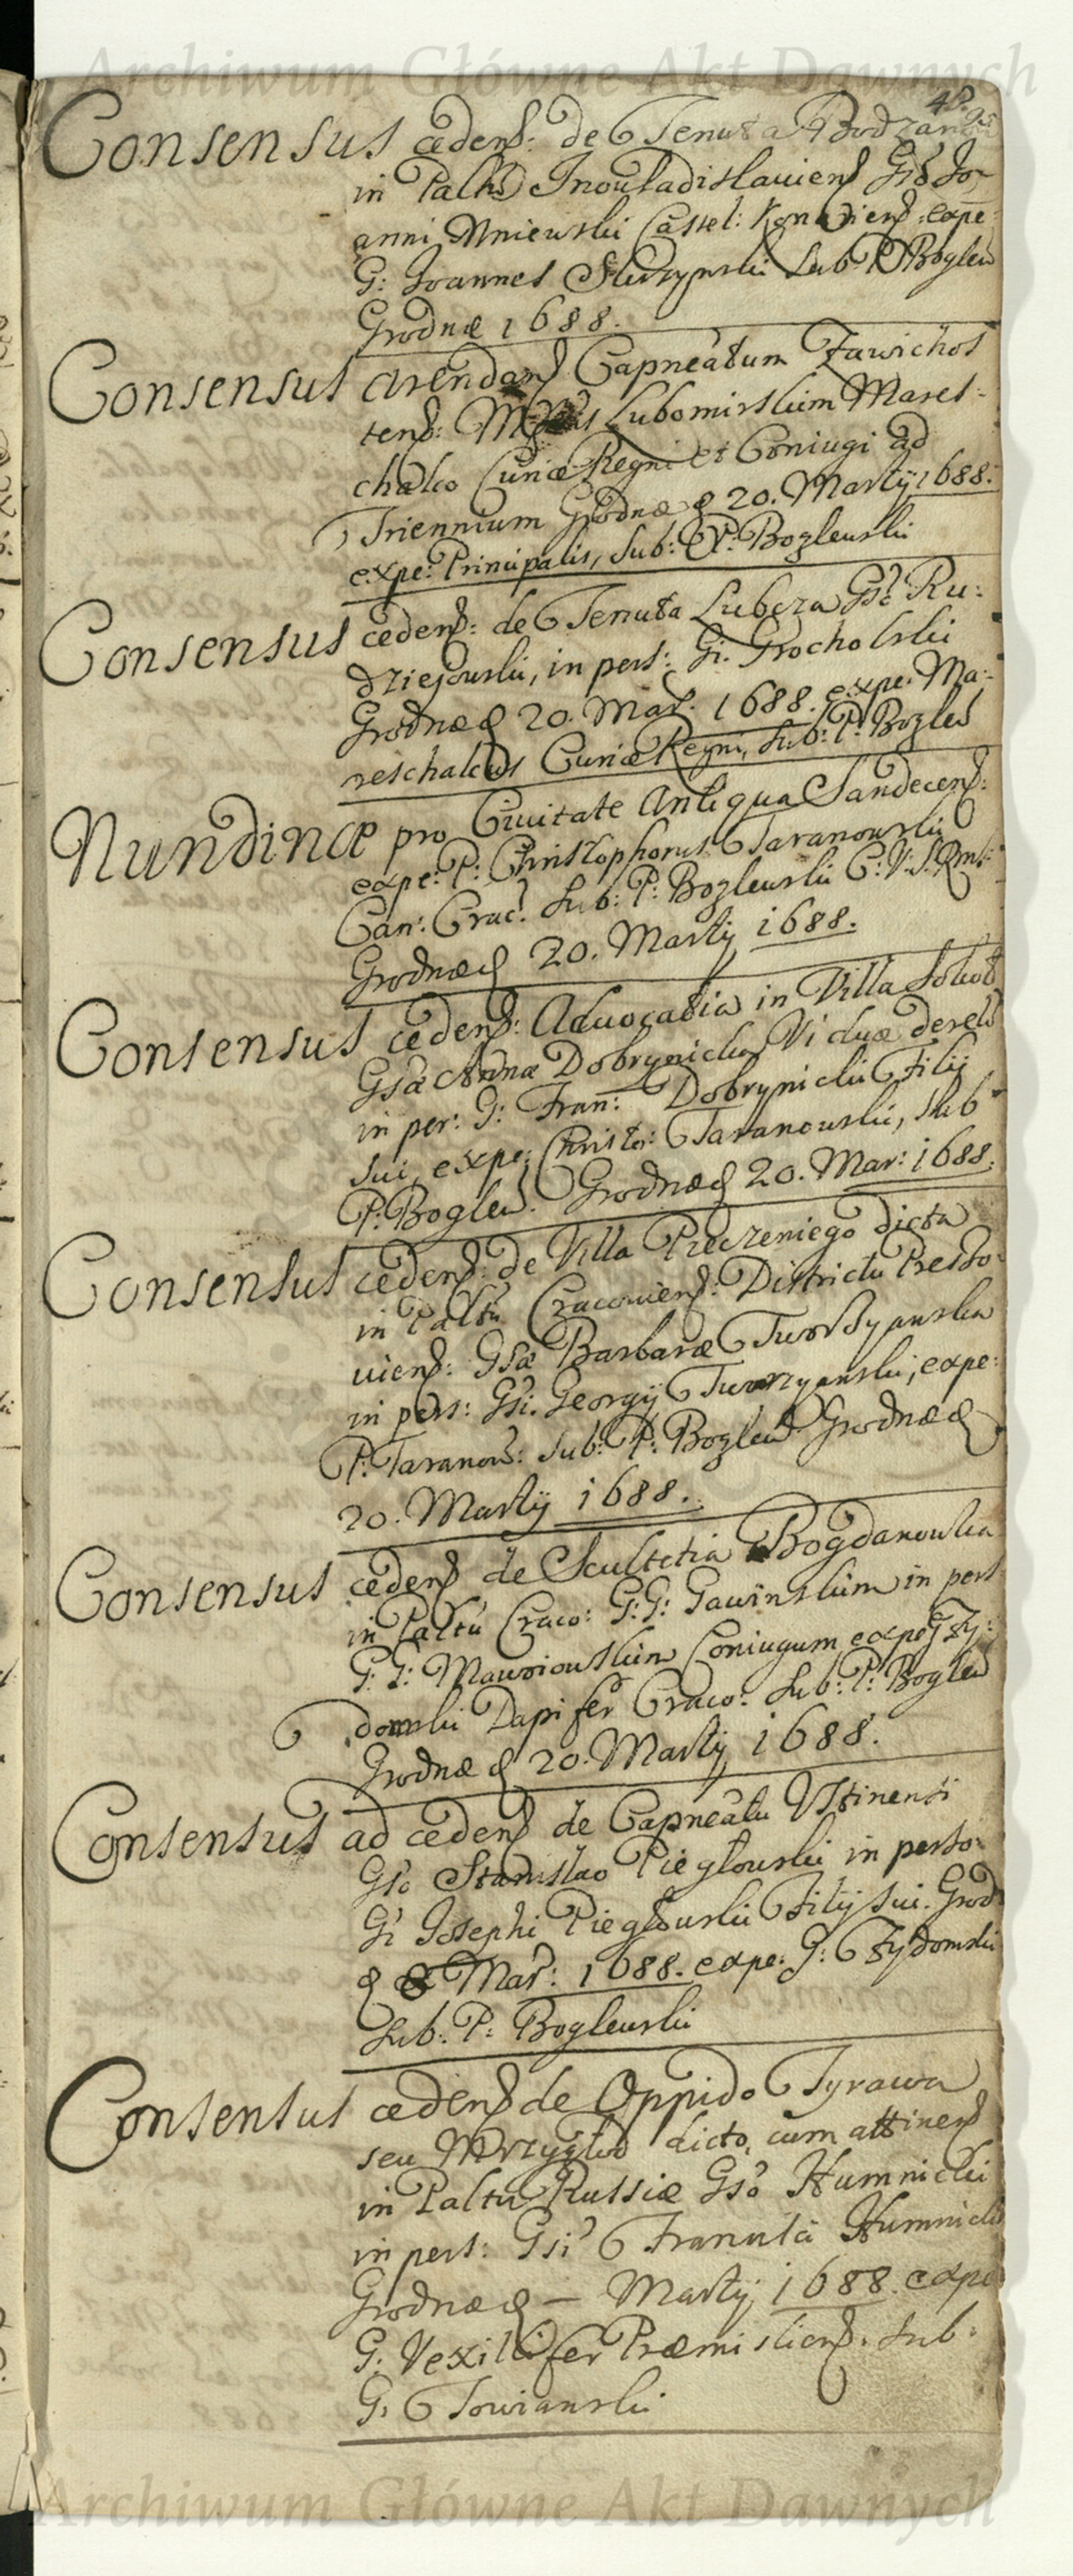 Archiwum Główne Akt Dawnych
Consensus cedend: de Tenuta Brodzano
in Paltu Inouladislauiens Gso Jo-
anni Mniewski Castel: Konariens: expe:
G: Joannes Skrzynski Sub: P: Boglew
Grodnæ 1688.
Consensus Arendand Capneatum Zawichos
tens: Lubomirskim Mares-
chalco Curiæ Regni et Coniugi ad
Triennium Grodnæ d 20. Martij 1688.
expe: Principalis, Sub: P: Boglewski
Consensus cedend: de Tenuta Lubcza Gso Ru-
dziejowski, in pers: Gi. Grocholski
Grodnæ d 20. Mar. 1688. expe. Ma-
reschalcus Curiæ Regni, Sub: P: Boglew
Nundinæ pro Ciuitate Antiqua Sandecens:
expe: P: Christophorus Taranowski
Can: Crac: Sub: P: Boglewski C: V: S. Rmt:
Grodnæ d 20. Martij 1688.
Consensus cedend: Aduocatia in Villa
Gsæ Annæ Dobrynicka Viduæ derel
in per: G: Fran: Dobrynicki Filij
sui, expe: Christo: Taranowski, Sub
P: Boglew. Grodnæ d 20. Mar: 1688.
Consensus cedend: de Villa Preczeniego dicta
in Paltu Cracouiens: Districtu Pres
uiens: Gsæ Barbaræ Tworzyanska
in pers: Gsi. Georgij Tworzyanski, expe:
P: Taranow: Sub: P: Boglew Grodnæ d
20. Martij 1688.
Consensus cedend de Scultetia Bogdanowka
in Paltu Craco: G: G: Gawinskim in pers
G: G: Coniugum expe G Zy-
domski Dapifer Craco: Sub: P: Boglew
Grodnæ d 20. Martij 1688.
Consensus ad cedend de Capneatu Ustinensi
Gso Stanislao Pieglowski in perso:
Gi Josephi Pieglowski Filij sui. Grod
d 8 Mar: 1688. expe: G: Zydomski
Sub: P: Boglewski
Consensus cedend de Oppido Tyrawa
seu Mrzyglod dicto, cum attinens
in Paltu Russiæ Gso Humnicki
in pers: Gsi Humnicki
Grodnæ d — Martij 1688. expe
G: Vexillifer Præmisliens: Sub:
G: Towianski
Archiwum Główne Akt Dawnych